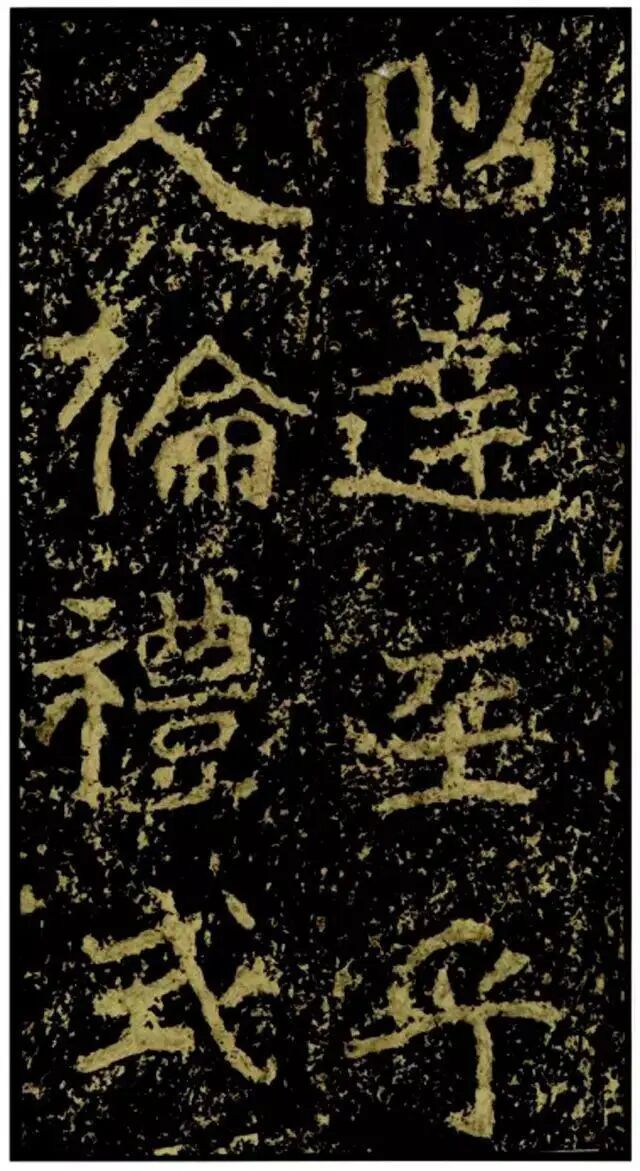 昭達至乎
人倫禮式